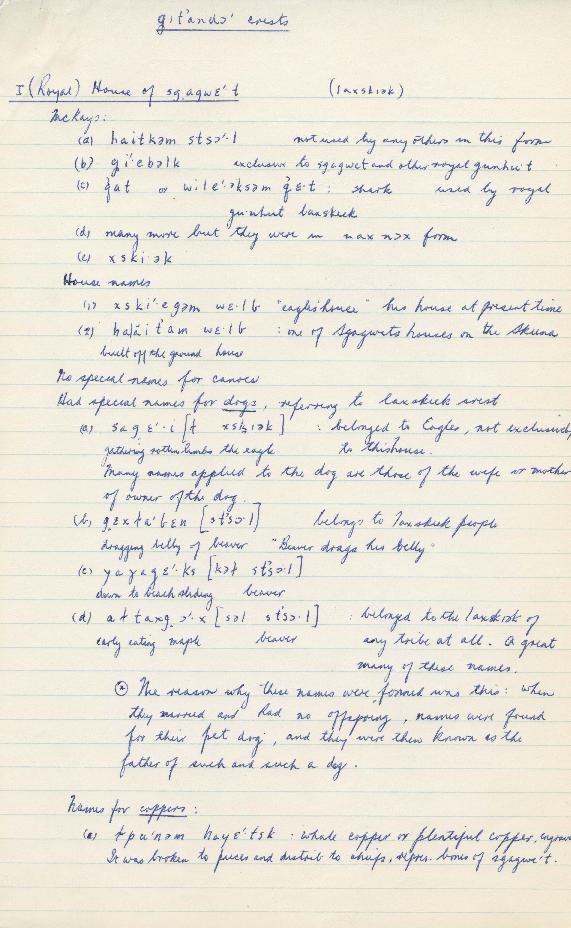 git'andɔ' crests
I (Royal) House of sgagwɛ't (laxskiək)
McKays:
(a) haitkəm stsɔ'·l not used by any others in this form
(b) gi'ebəlk exclusive to sgagwet and other royal gunhu't
(c) q̓at or wile'·əksəm q̓ɛ·t : shark used by royal
gunhut laxskeek
(d) many more but they were in naxnɔx form
(e) xski·ək
House names
(1) xski'·egəm wɛ·lb "eagles house" his house at present time
(2) halait'am wɛ·lb : one of sgagwets houses on the Skeena
built off the ground house
No special names for canoes
Had special names for dogs, referring to laxskeek crest
(a) sagɛ'·i [ɫ xskiək] : belonged to Eagles, not exclusively
gathering rotten limbs the eagle to this house.
Many names applied to the dog are those of the wife or mother
of owner of the dog.
(b) gɛxɫa'bɛn [st'sɔ·l] belongs to laxskeek people
dragging belly of beaver "Beaver drags his belly"
(c) yayagɛ'·ks [kəɫ st'sɔ·l]
down to beach sliding beaver
(d) aɫtaxgɔ'·x [səl st'sɔ·l] : belonged to the laxskiək of
early eating maple beaver any tribe at all. A great
many of these names.
The reason why these names were formed was this: when
they married and had no offspring, names were found
for their pet dog, and they were then known as the
father of such and such a dog.
Names for coppers:
(a) ɫpu'nəm hayɛ'tsk : whale copper or plentiful copper,
It was broken to pieces and distrib to chiefs, repres. bones of sgagwɛ't.